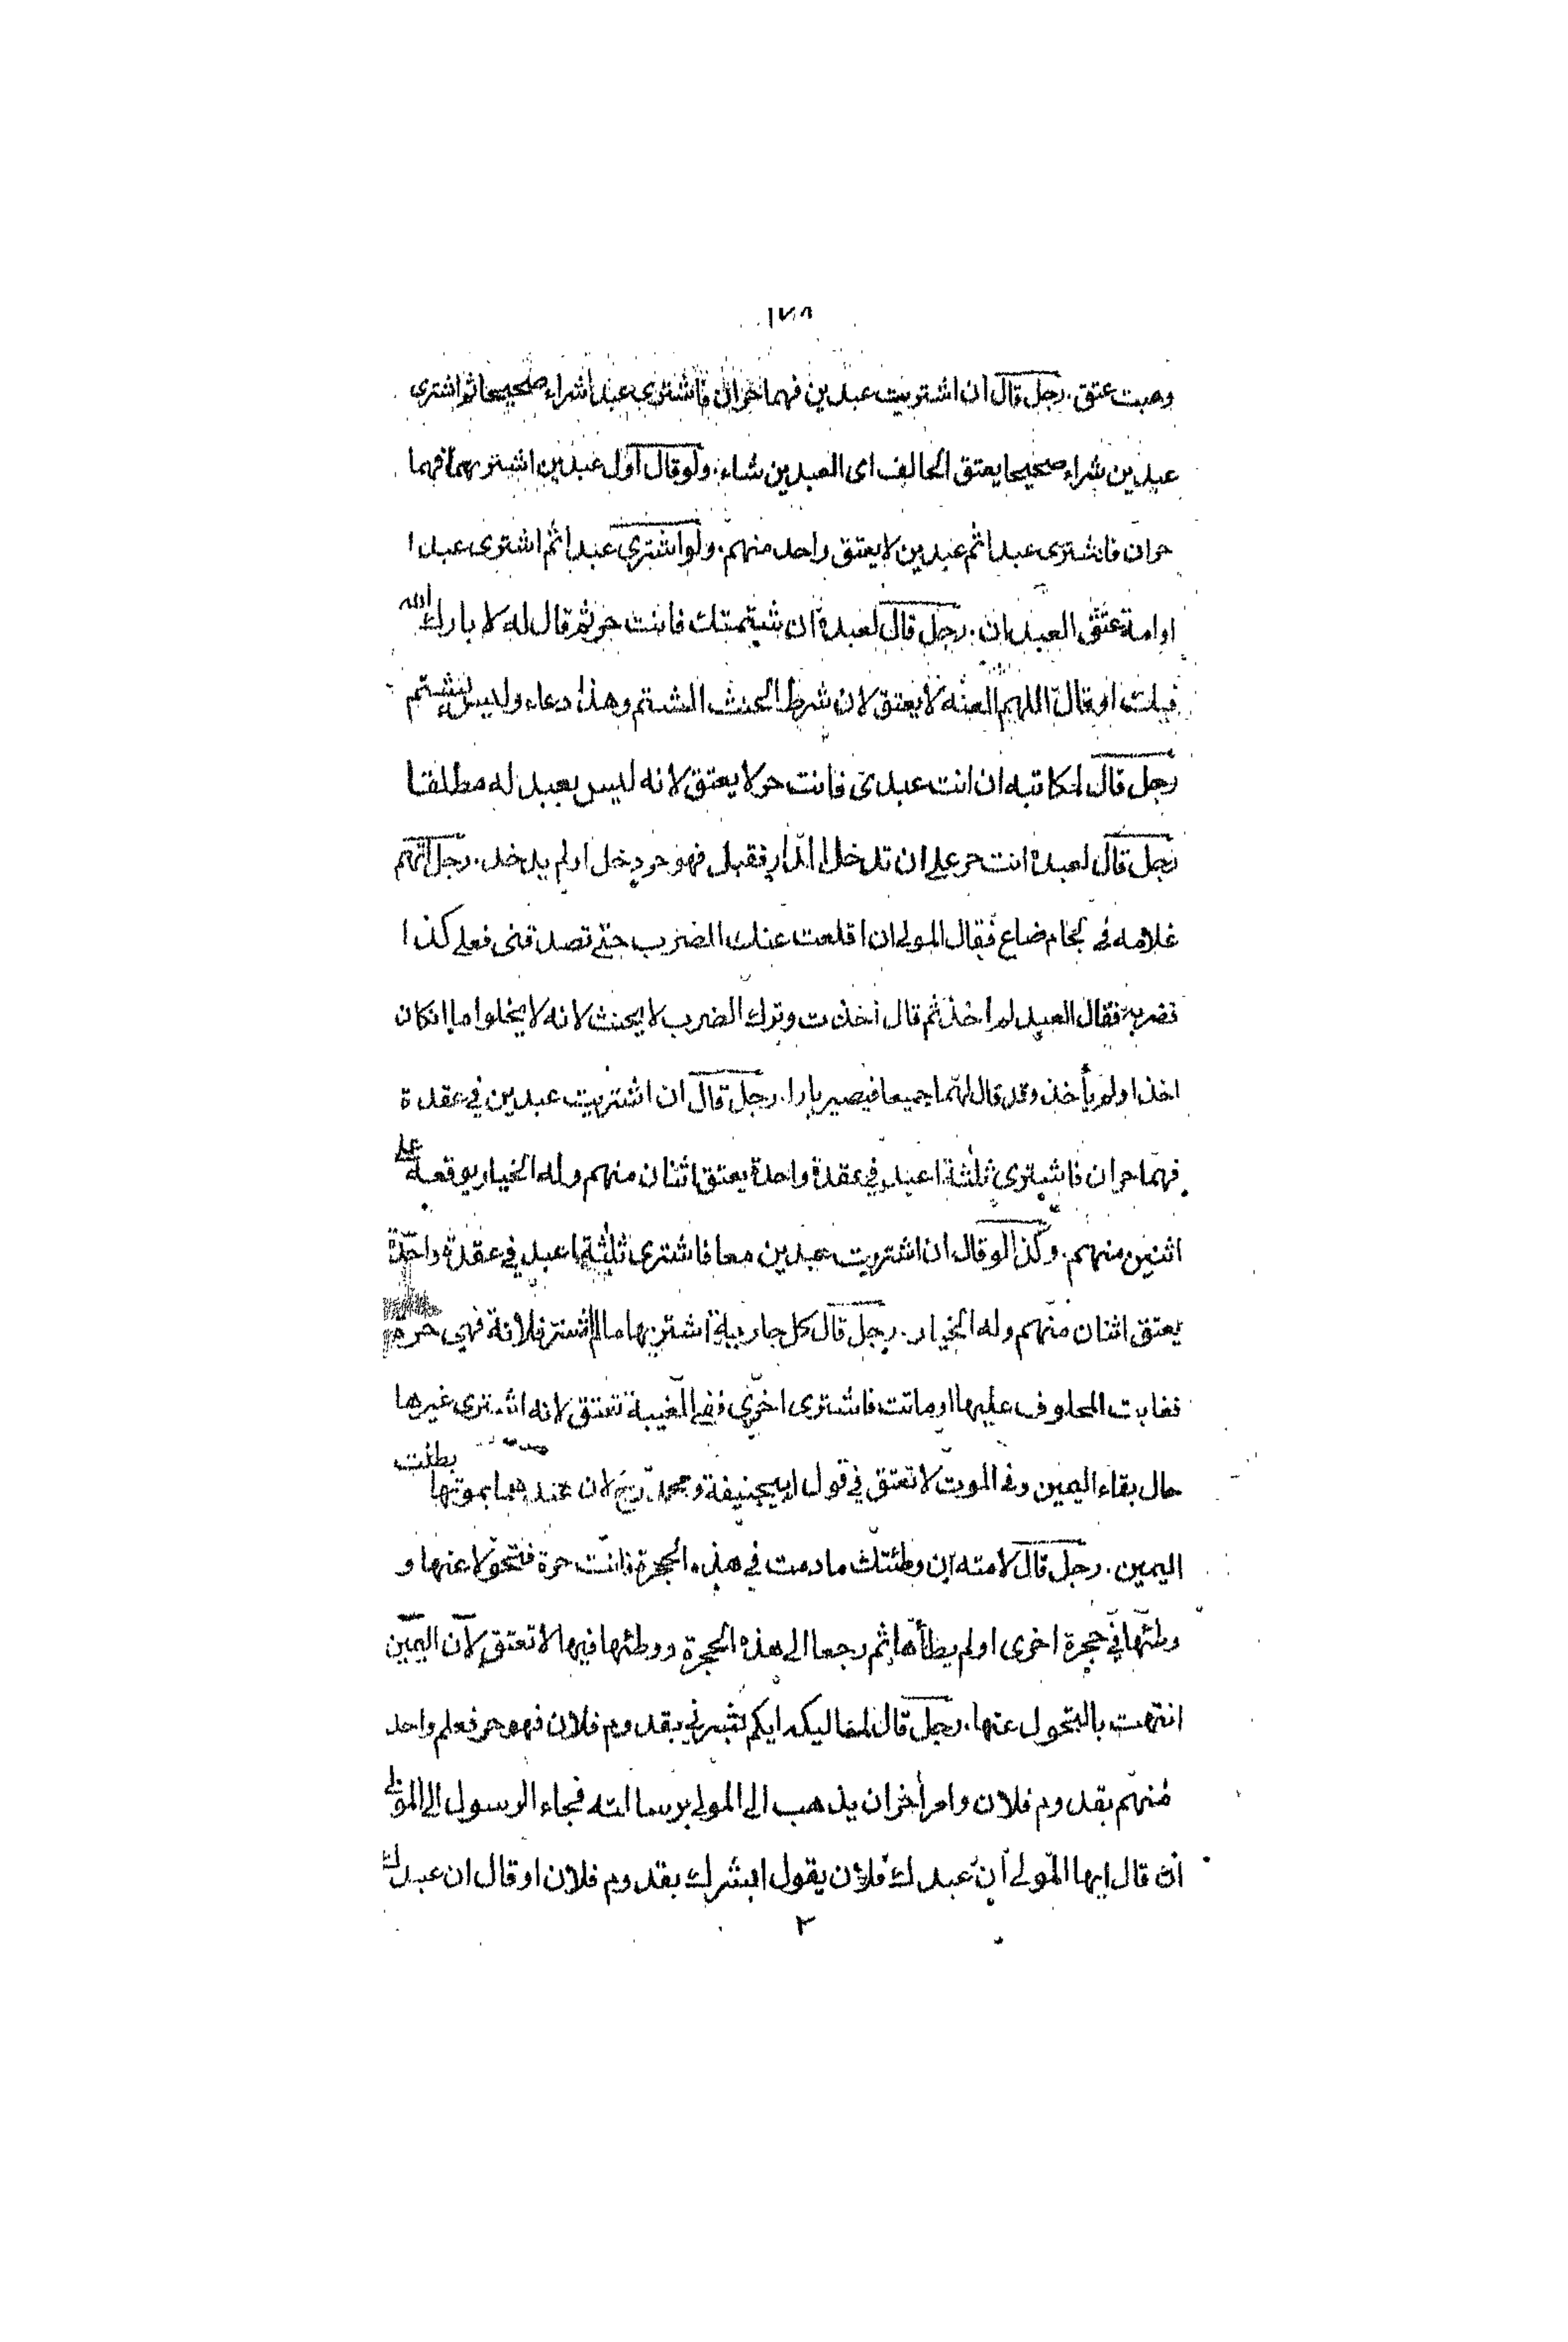 ١٧٨
وهبت عتق. رجل قال ان اشتريت عبدين فهما حران فاشترى عبدا شراء صحيحا ثم اشترى
عبدين شراء صحيحا يعتق الحالف اى العبدين شاء. ولو قال اول عبدين اشتريهما فهما
حران فاشترى عبدا ثم عبدين لا يعتق واحد منهم. ولو اشترى عبدا ثم اشترى عبدا
او امة عتق العبدان. رجل قال لعبده ان شتمتك فانت حر ثم قال له لا بارك الله
فيك او قال اللهم العنه لا يعتق لان شرط الحنث الشتم وهذا دعاء وليس بشتم
رجل قال لمكاتبه ان انت عبدى فانت حر لا يعتق لانه ليس بعبد له مطلقا
رجل قال لعبده انت حر على ان تدخل الدار فقبل فهو حر دخل او لم يدخل. رجل اتهم
غلامه فى ضاع فقال المولى ان اقلعت عنك الضرب حتى تصدقنى فعلى كذا
فضربه فقال العبد لم اخذ ثم قال اخذت وترك الضرب لا يحنث لانه لا يخلوا ما انكان
اخذ او لم يأخذ وقد قال لهما جميعا فيصير بارا. رجل قال ان اشتريت عبدين فى عقدة
فهما حران فاشترى ثلثة اعبد فى عقدة واحدة يعتق اثنان منهم وله الخيار يوقعه على
اثنين منهم. وكذا لو قال ان اشتريت عبدين معا فاشترى ثلثة اعبد فى عقدة واحدة
يعتق اثنان منهم وله الخيار. رجل قال كل جارية اشتريها ما لم اشتر فلانة فهى حرة
فغابت المحلوف عليها او ماتت فاشترى اخرى ففى الغيبة تعتق لانه اشترى غيرها
حال بقاء اليمين وفى الموت لا تعتق فى قول ابيحنيفة ومحمد رح لان عندهما بموتها بطلت
اليمين. رجل قال لامته ان وطئتك ما دمت فى هذه الحجرة فانت حرة فتحولا عنها و
وطئها فى حجرة اخرى او لم يطأها ثم رجعا الى هذه الحجرة ووطئها فيها لا تعتق لان اليمين
انتهت بالتحول عنها. رجل قال لمماليكه ايكم بشرنى بقدوم فلان فهو حر فعلم واحد
منهم بقدوم فلان وامر اخر ان يذهب الى المولى برسالته فجاء الرسول الى المولى
ان قال ايها المولى ان عبدك فلان يقول ابشرك بقدوم فلان او قال ان عبدك
٢